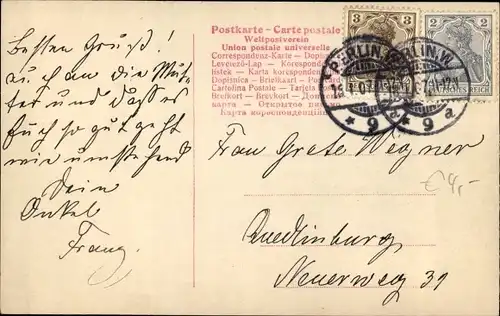 Besten Gruß!
auch an die Mut-
ter und daß es
Euch so gut geht
wie umstehend
Dein
Onkel
Franz.
Postkarte - Carte postale
Weltpostverein
Union postale universelle
Correspondenz-Karte - Dopis
Levelező-Lap - Korespond
listek - Karta korespondenc
Dopisnica - Briefkaart - Post
Cartolina Postale - Tarjeta Po
Brefkort - Brevkort - Дописн
карта - Открытое
Карта корреспонденц
3
3
2
2
DEUTSCHES REICH
BERLIN, W.
BERLIN, W.
* 9
* 9 a
Frau Grete Wegner
€ 4,-
Quedlinburg
Neuerweg 31